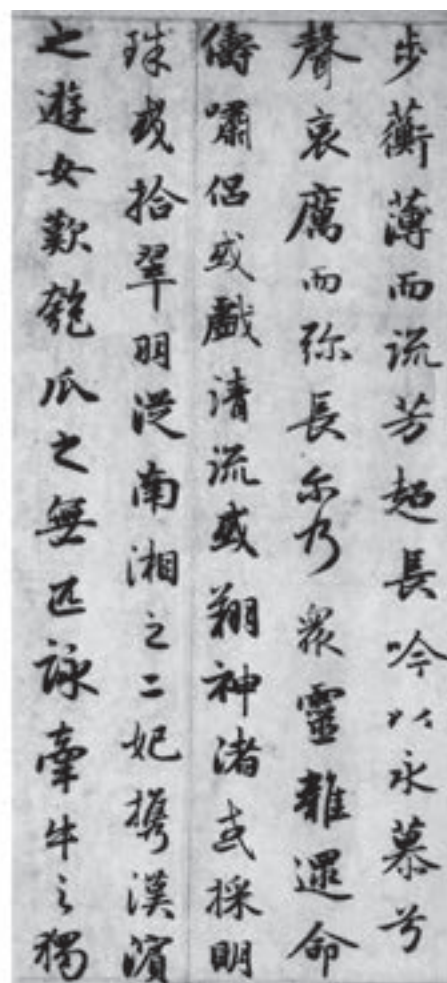 步蘅薄而流芳超長吟以永慕兮
聲哀厲而弥長尔乃衆靈雜遝命
儔嘯侶或戲清流或翔神渚或採明
珠或拾翠羽從南湘之二妃攜漢濱
之遊女歎匏瓜之無匹詠牽牛之獨